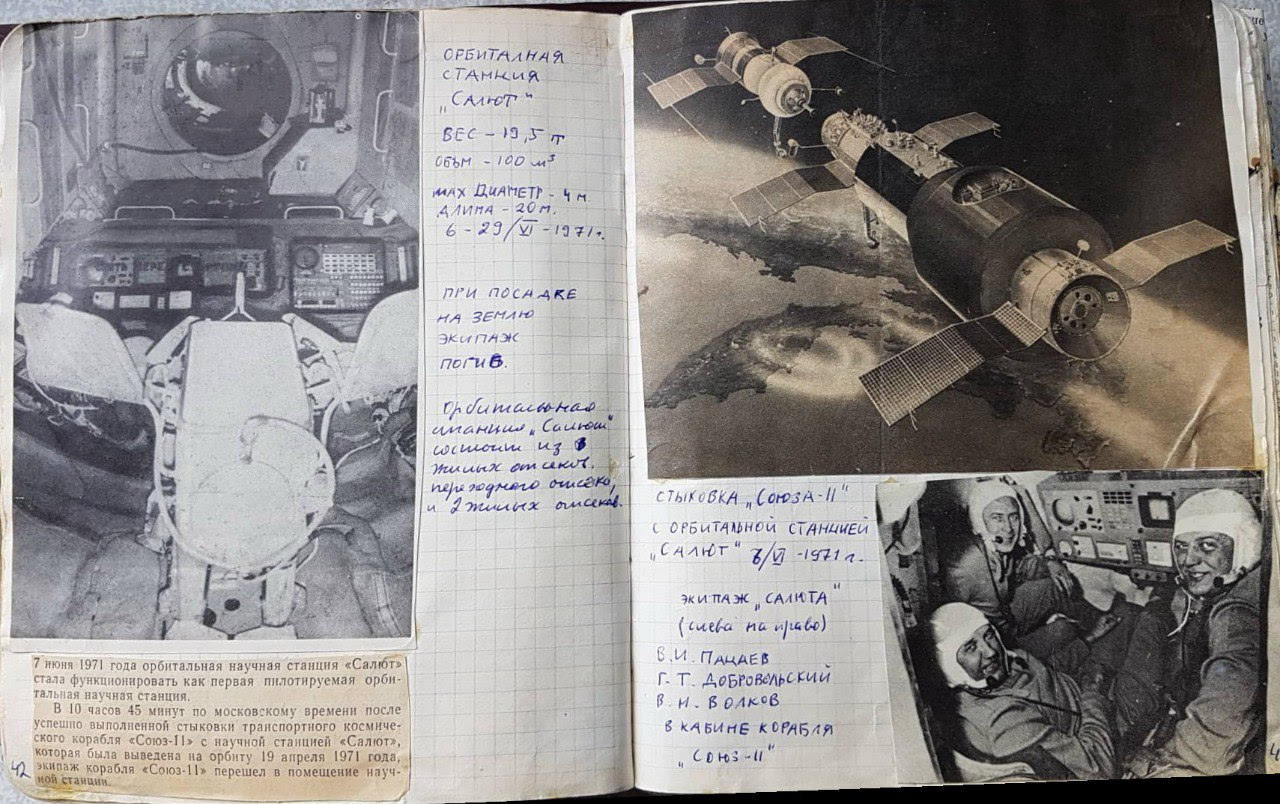 ОРБИТАЛНАЯ
СТАНЦИЯ
„САЛЮТ"
ВЕС - 19,5 т
ОБЪМ - 100 м³
МАХ ДИАМЕТР - 4 м
ДЛИНА - 20 м.
6 - 29/VI - 1971 г.
ПРИ ПОСАДКЕ
НА ЗЕМЛЮ
ЭКИПАЖ
ПОГИБ.
Орбитальная
станция „Салют"
состоит из
жилых отсеков.
переходного отсека,
и 2 жилых отсеков.
7 июня 1971 года орбитальная научная станция «Салют»
стала функционировать как первая пилотируемая орби-
тальная научная станция.
В 10 часов 45 минут по московскому времени после
успешно выполненной стыковки транспортного космиче-
ского корабля «Союз-11» с научной станцией «Салют»,
которая была выведена на орбиту 19 апреля 1971 года,
экипаж корабля «Союз-11» перешел в помещение науч-
ной станции.
42
СТЫКОВКА „СОЮЗА-11"
С ОРБИТАЛЬНОЙ СТАНЦИЕЙ
„САЛЮТ" 6/VI - 1971 г.
ЭКИПАЖ „САЛЮТА"
(слева на право)
В. И. ПАЦАЕВ
Г. Т. ДОБРОВОЛЬСКИЙ
В. Н. ВОЛКОВ
В КАБИНЕ КОРАБЛЯ
„СОЮЗ-11"